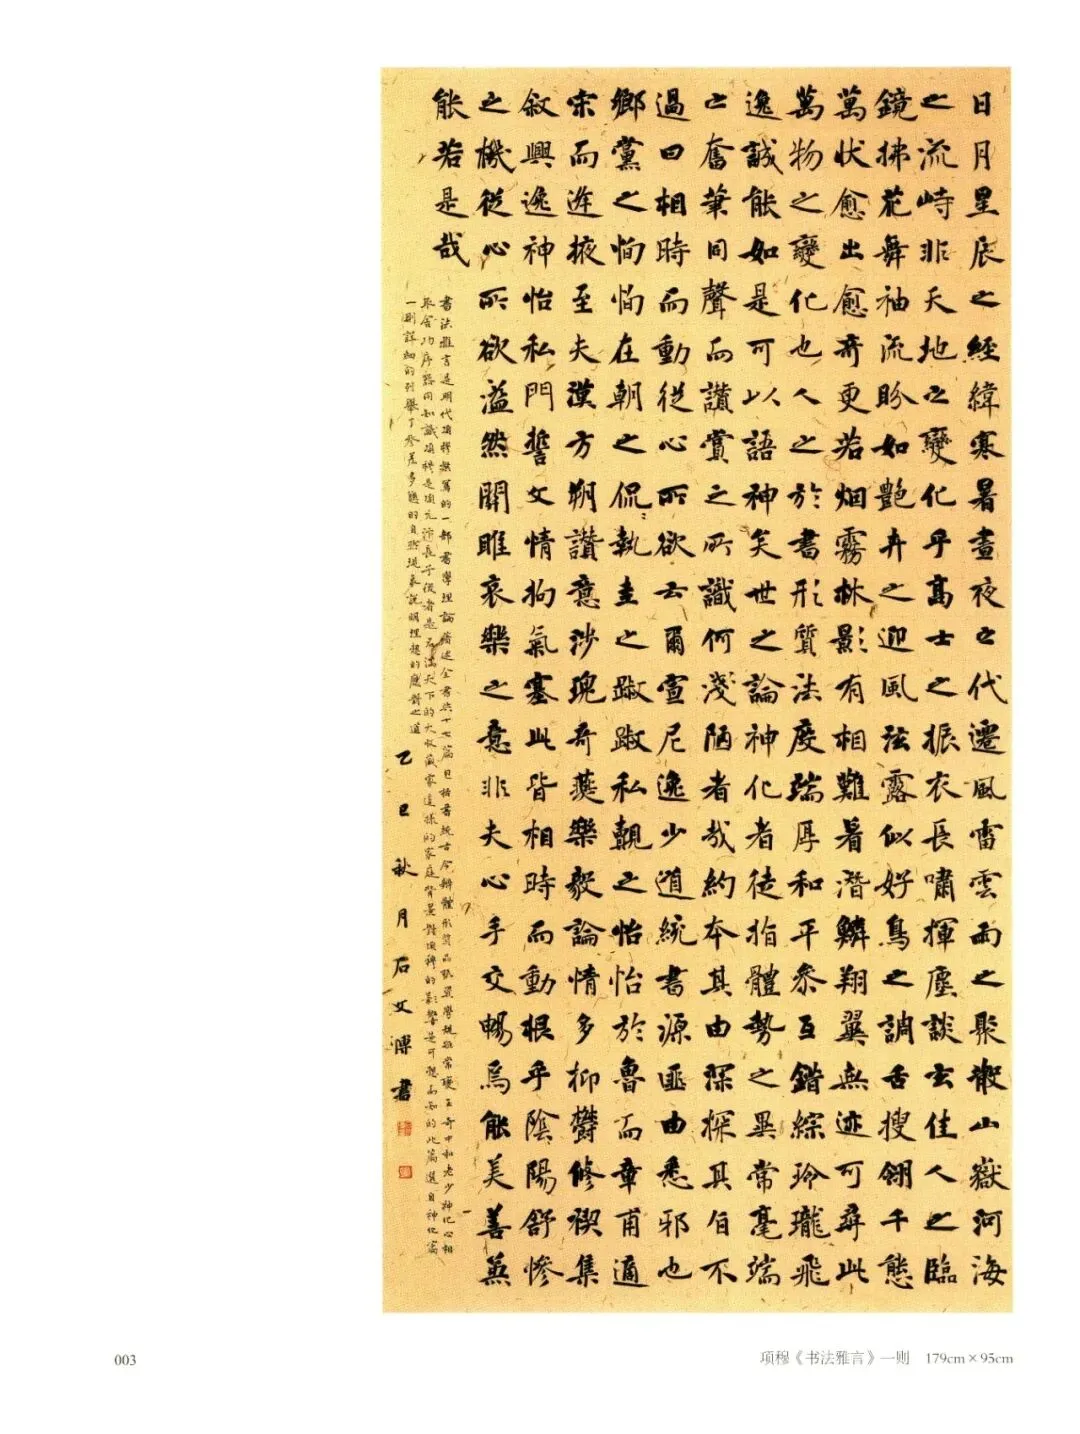 日月星辰之經緯寒暑晝夜之代遷風雷雲雨之聚散山嶽河海
之流峙非天地之變化乎高士之振衣長嘯揮麈談玄佳人之臨
鏡拂花舞袖流盼如艷卉之迎風泫露似好鳥之調舌搜翎千態
萬狀愈出愈奇更若烟霧林影有相難着潛鱗翔翼無迹可尋此
萬物之變化也人之於書形質法度端厚和平參互錯綜玲瓏飛
逸誠能如是可以語神矣世之論神化者徒指體勢之異常毫端
之奮筆同聲而讚賞之所識何淺陋者哉約本其由深探其旨不
過曰相時而動從心所欲云爾宣尼逸少道統書源匪由悉邪也
鄉黨之恂恂在朝之侃執圭之踧踧私覿之怡怡於魯而章甫適
宋而逢掖至夫漢方朔讚意涉瑰奇燕樂毅論情多抑鬱修禊集
敘興逸神怡私門誓文情拘氣塞此皆相時而動根乎陰陽舒慘
之機從心所欲溢然關雎哀樂之意非夫心手交暢焉能美善兼
能若是哉
書法雅言是明代項穆撰寫的一部書學理論著述全書共十七篇包括書統古今辨體形質品格資學規矩常變正奇中和老少神化心相
取舍功序器用知識項穆是項元汴長子後者是名滿天下的大收藏家這樣的家庭背景對項穆的影響是可想而知的此篇選自神化篇
一則詳細的列舉了參差多態的自然現象說明理想的應對之道
乙巳秋月石文溥書
003
项穆《书法雅言》一则 179cm×95cm